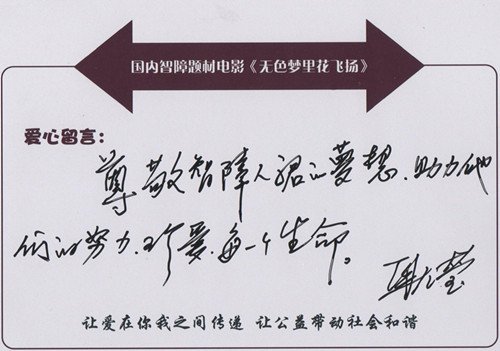 国内智障题材电影《无色梦里花飞扬》
爱心留言：
尊敬智障人群的夢想，助力他
们的努力，珍爱每一个生命。
让爱在你我之间传递 让公益带动社会和谐